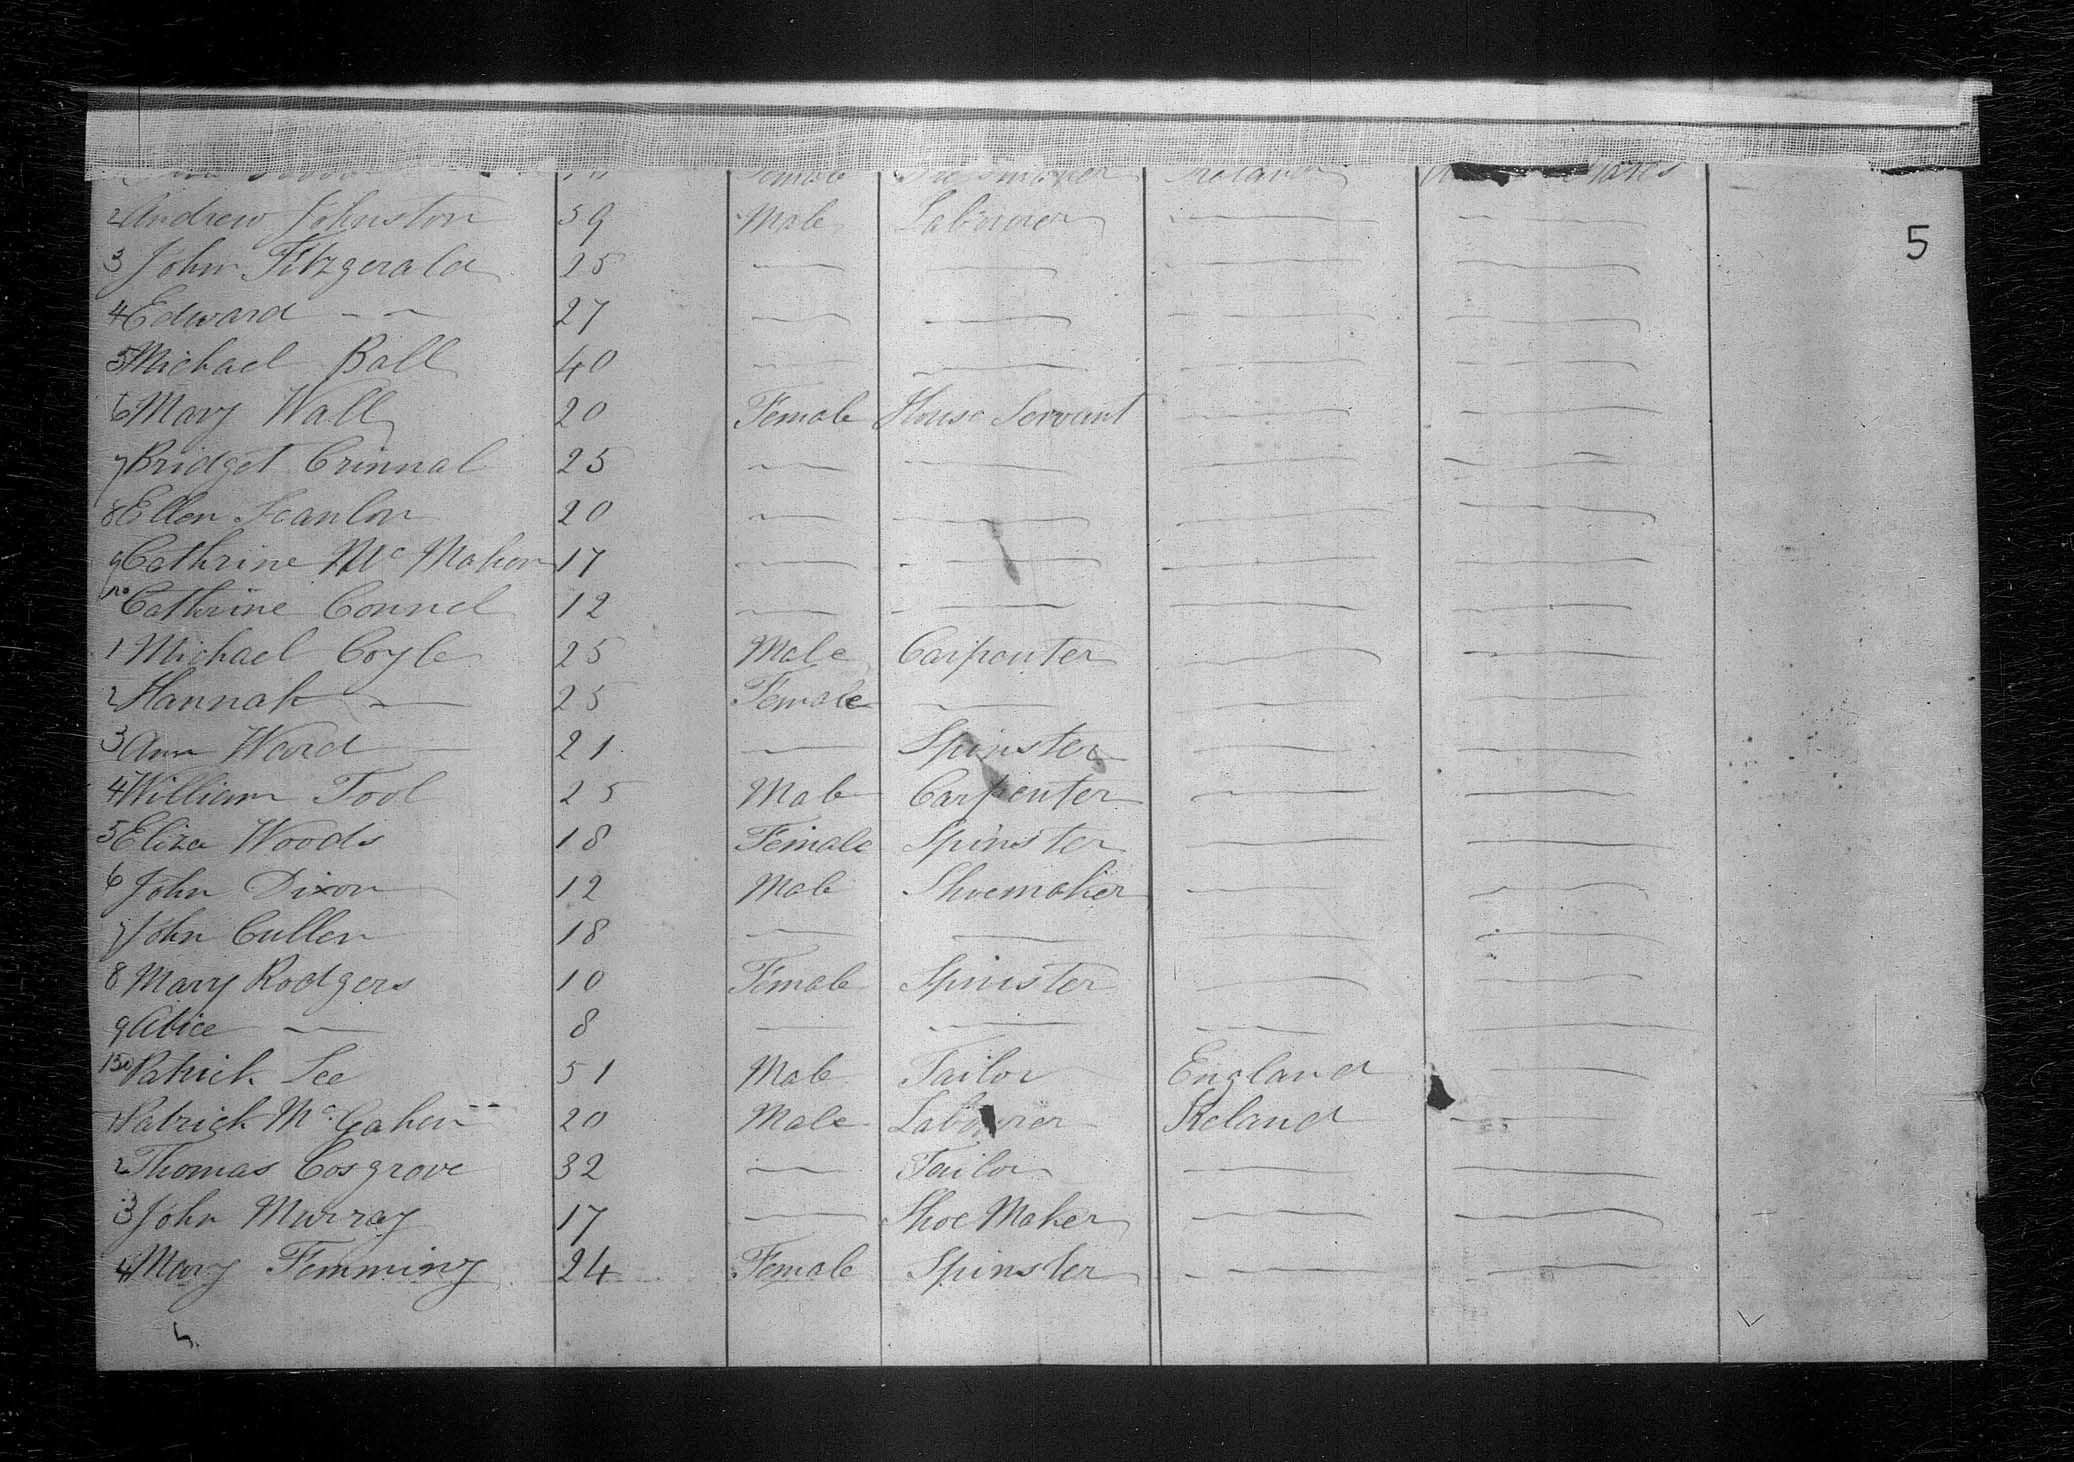 Female Dressmaker Ireland
2 Andrew Johnston 59 Male Labourer
5
3 John Fitzgerald 25
4 Edward — 27
5 Michael Ball 40
6 Mary Wall 20 Female House Servant
7 Bridget Crinnal 25
8 Ellen Scanlon 20
9 Cathrine Mc Mahon 17
110 Cathrine Connel 12
1 Michael Coyle 25 Male Carpenter
2 Hannah — 25 Female
3 Ann Ward 21 — Spinster
4 William Tool 25 Male Carpenter
5 Eliza Woods 18 Female Spinster
6 John Dixon 12 Male Shoemaker
7 John Cullen 18
8 Mary Rodgers 10 Female Spinster
9 Alice — 8
130 Patrick Lee 51 Male Tailor England
1 Patrick Mc Gahen 20 Male Labourer Ireland
2 Thomas Cosgrove 32 — Tailor
3 John Murray 17 — Shoe Maker
4 Mary Femming 24 Female Spinster